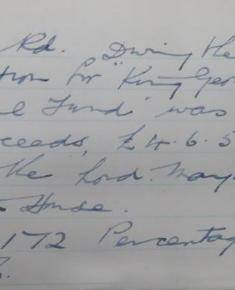 Rd. During the
tion for "King Geor
l Fund" was
ceeds, £4.6.5
the Lord May
House.
172 Percentag